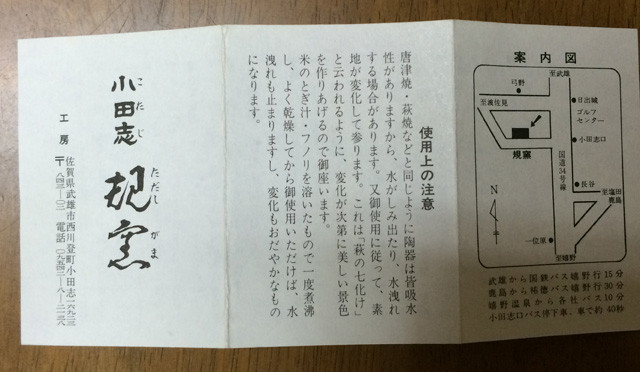 案内図
至武雄
弓野
至波佐見
日出城
ゴルフ
センター
小田志口
規窯
国道34号線
長谷
至塩田
鹿島
N
一位原
至嬉野
武雄から国鉄バス嬉野行15分
鹿島から祐徳バス嬉野行30分
嬉野温泉から各社バス10分
小田志口バス停下車、車で約40秒
使用上の注意
唐津焼・萩焼などと同じように陶器は皆吸水
性がありますから、水がしみ出たり、水洩れ
する場合があります。又御使用に従って、素
地が変化して参ります。これは「萩の七化け」
と云われるように、変化が次第に美しい景色
を作りあげるので御座います。
米のとぎ汁・フノリを溶いたもので一度煮沸
し、よく乾燥してから御使用いただけば、水
洩れも止まりますし、変化もおだやかなもの
になります。
こたじ ただしがま
小田志 規窯
工房
佐賀県武雄市西川登町小田志
〒八四三 電話